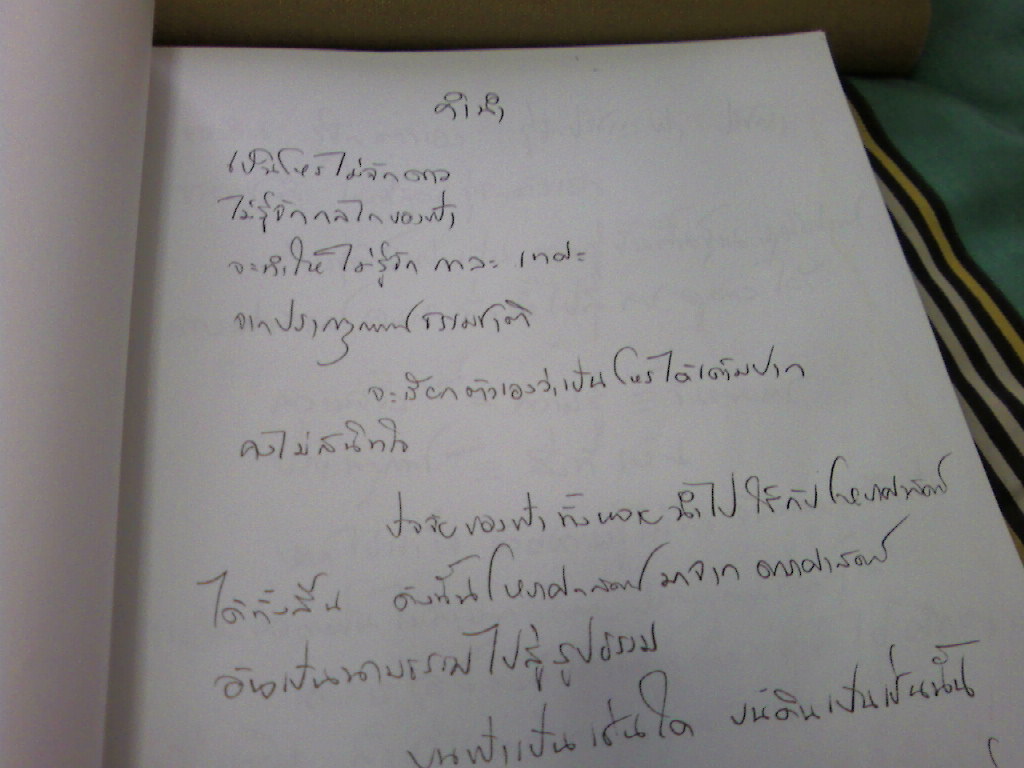 คำนำ
เป็นโหรไม่รู้จักดาว
ไม่รู้จักกลไกของฟ้า
จะทำให้ไม่รู้จัก กาละ เทศะ
จากปรากฏการณ์ธรรมชาติ
จะเรียกตัวเองว่าเป็นโหรได้เต็มปาก
คงไม่สนิทใจ
ปัจจัยของฟ้าทั้งหลายนำไปใช้กับโหราศาสตร์
ได้ทั้งสิ้น ดังนั้นโหราศาสตร์มาจาก ดาราศาสตร์
อันเป็นนามธรรมไปสู่รูปธรรม
บนฟ้าเป็นเช่นใด บนดินเป็นเช่นนั้น